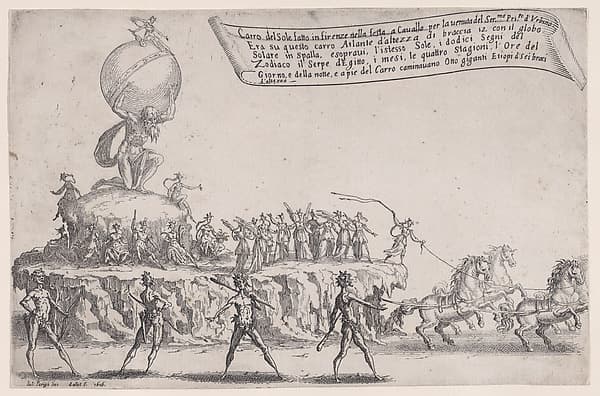 Carro del Sole fatto in firenze nella festa a Cavallo per la venuta del Ser.mo Pri.pe d'Urbino
Era su questo carro Atlante d'altezza di braccia 12 con il globo
Solare in Spalla, e sopravi, l'istesso Sole, i dodici Segni del
Zodiaco il Serpe d'Egitto, i mesi, le quattro Stagioni, l'Ore del
Giorno, e della notte, e a pie del Carro caminavano Otto giganti Etiopi d Sei braci
d'altezza
Iul. Parigij Inv. Callot F. 1616.